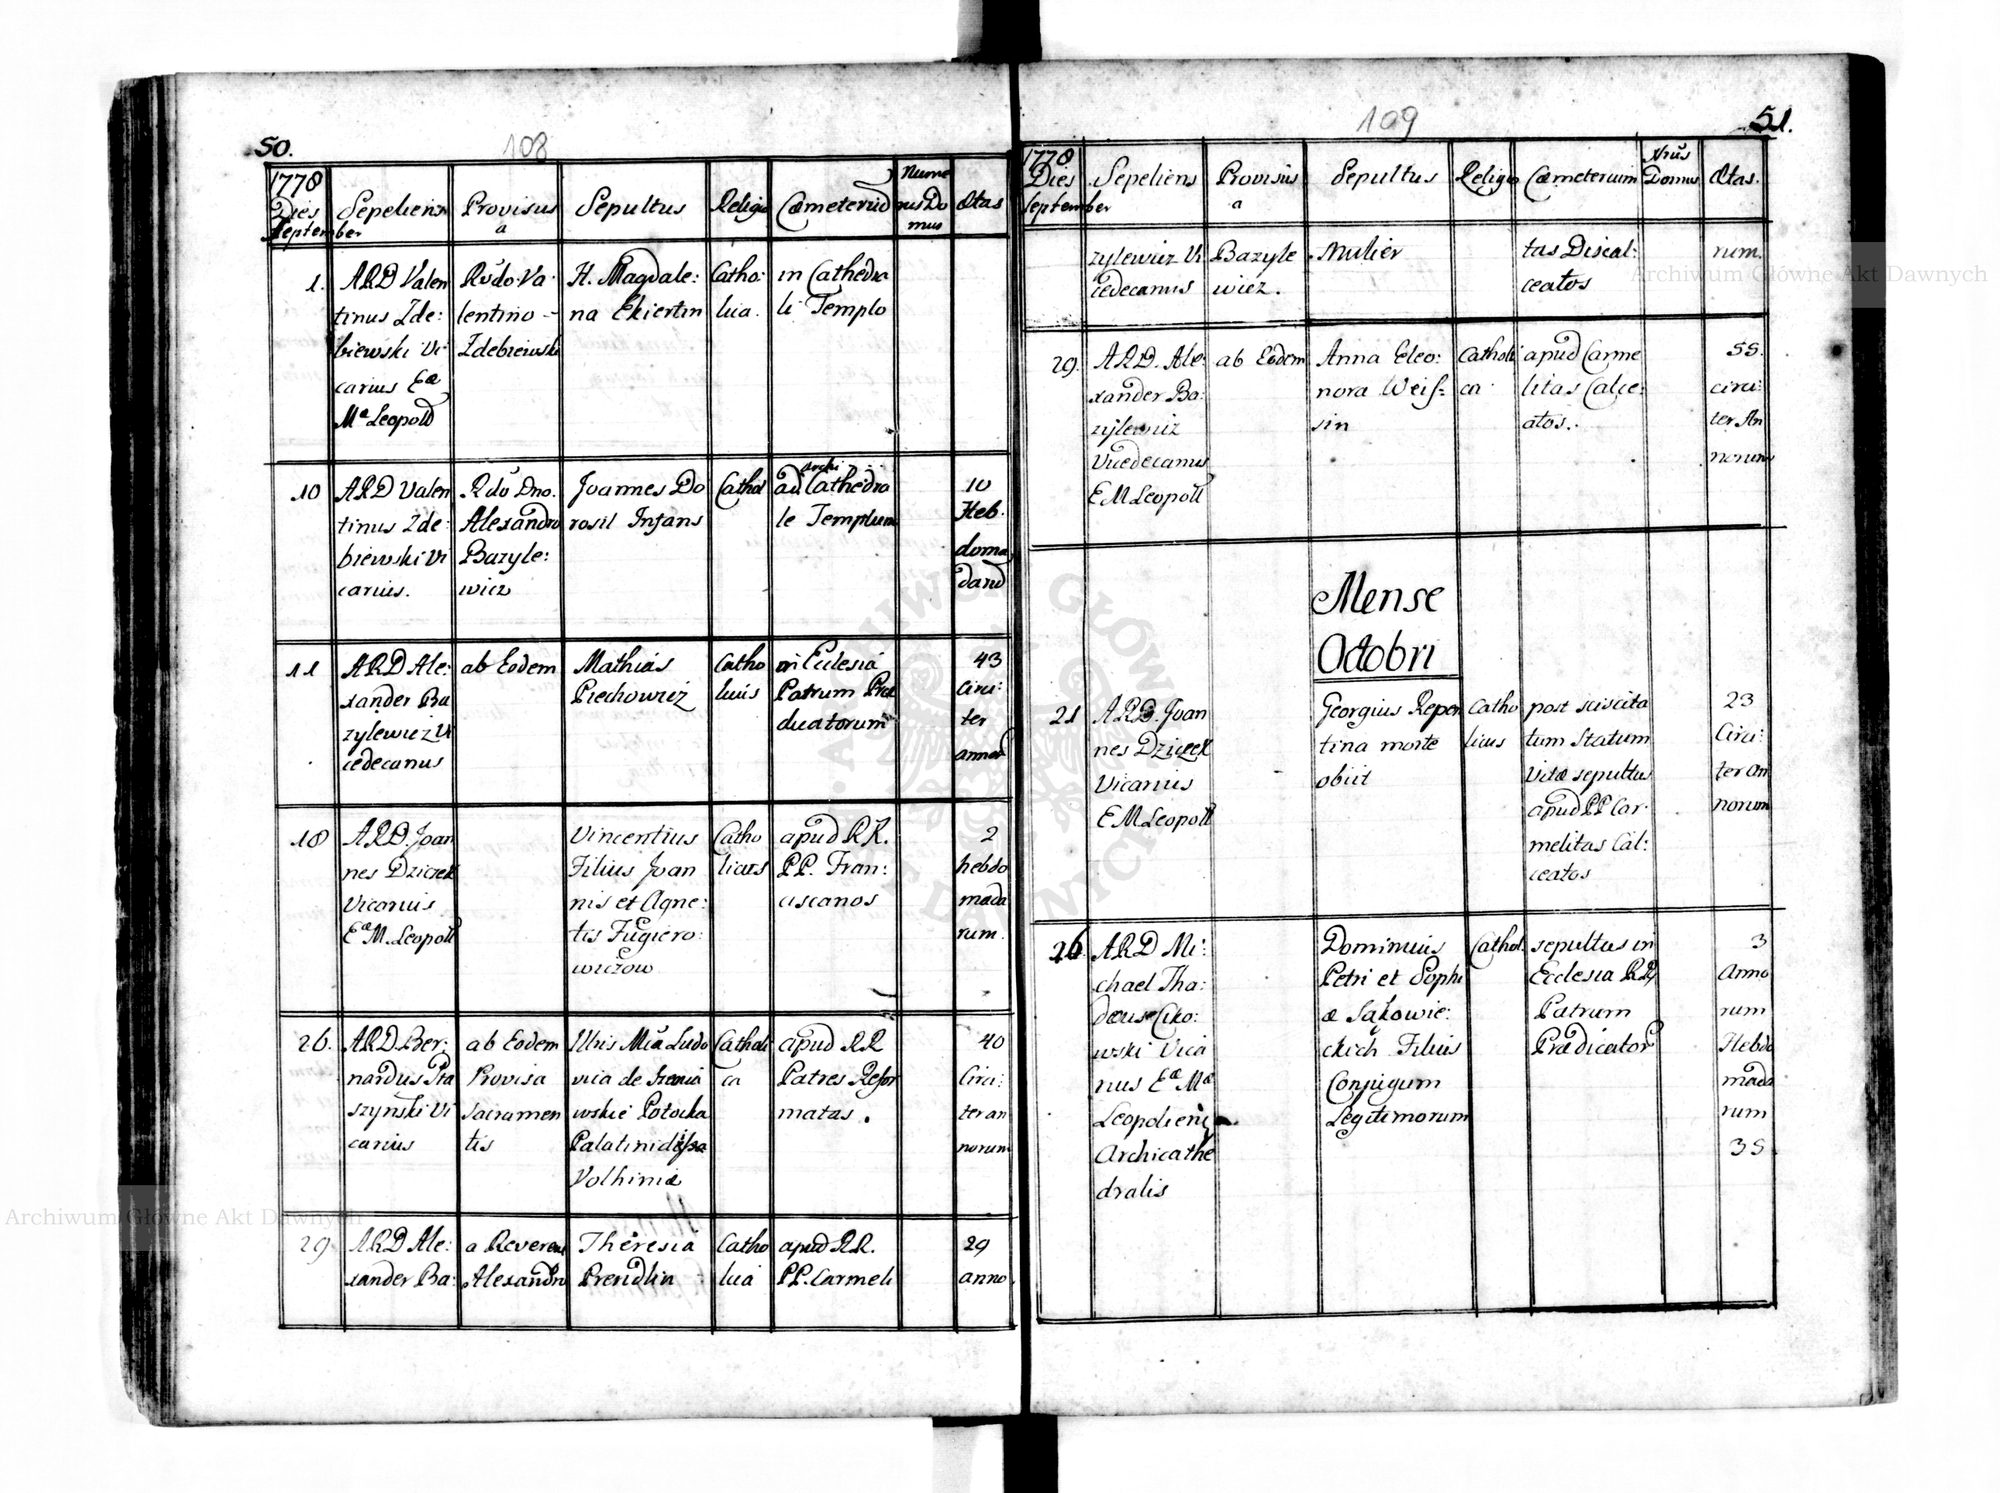 50.
108
1778
Dies
September
Sepeliens
Provisus
a
Sepultus
Religio
Cæmeteriũ
Nume
rus Do
mus
Ætas
1.
ARD Valen
tinus Zde:
biewski Vi
carius Eæ
Mæ Leopold
Rv̆do Va:
lentino -
Zdebiewski
H. Magdale:
na Ekiertin
Catho:
lica.
in Cathedra
li Templo
10
ARD Valen
tinus Zde:
biewski Vi
carius.
Rdo Dno.
Alexandro
Bazyle:
wicz
Joannes Do
rosil Infans
Cathol
ad Archi Cathedra
le Templum
10
Heb.
doma
darũ
11
ARD Ale:
xander Ba
zylewicz Vi
cedecanus
ab Eodem
Mathias
Piechowicz
Catho
licus
in Eclesiá
Patrum Præ
dicatorum
43
Circi:
ter
annor
18
ARD. Joan
nes Dziczek
Vicarius
Eæ M. Leopoll
Vincentius
Filius Joan
nis et Agne:
tis Fugiero:
wiczow
Catho
licus
apud RR.
PP. Fran:
ciscanos
2
hebdo
mada
rum.
26.
ARD. Ber:
nardus Sta
szynski Vi
carius
ab Eodem
Provisa
Sacramen
tis
Illris Mũa Ludo
vica de
Potocka
Volhiniæ
Catholi
ca
apud RR
Patres Refor
matas.
40
Circi:
ter an
norum
29
ARD Ale:
xander Ba:
a Reveren
Alexandro
Theresia
Prendlin
Catho
lica
apud RR.
PP. Carmeli
29
anno
109
51.
1778
Dies
September
Sepeliens
Provisus
a
Sepultus
Religio
Cæmeterium
Nrũs
Domus
Ætas.
zylewicz Vi
cedecanus
Bazyle
wicz.
Mulier
tas Discal:
ceatos
rum.
29.
ARD. Ale:
xander Ba:
zylewicz
Vicedecanus
E M Leopoll
ab Eodem
Anna Eleo:
nora Weis:
sin
Catholi
ca
apud Carme
litas Calce:
atos.
55.
circi:
ter An
norum
Mense
Octobri
21
ARD. Joan
nes Dziczek
Vicarius
E M Leopoll
Georgius Repen
tina morte
obiit
Catho
licus
post sciscita
tum Statum
Vitæ sepultus
apud PP Car:
melitas Cal:
ceatos
23
Circi:
ter An
norum
26
ARD Mi:
chael Tha:
dæus Ciko:
wski Vica
rius Eæ Mæ
Leopoliens
Archicathe
dralis
Dominicus
Petri et Sophi
æ Sąkowie:
ckich Filius
Conjugum
Legitimorum
Cathol.
sepultus in
Ecclesia RR
Patrum
Prædicator
3
Anno
rum
Hebdo
mada
rum
35
Archiwum Główne Akt Dawnych
Archiwum Główne Akt Dawnych
ARCHIWUM GŁÓWNE AKT DAWNYCH